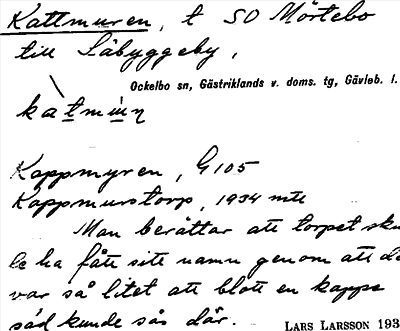 Kattmuren, t SO Mörtebo
till Såbyggeby,
Ockelbo sn, Gästriklands v. doms. tg, Gävleb. l.
Kappmyren, G 105
Kappmurstorp, 1934 mtl
Man berättar att torpet sku
le ha fått sitt namn genom att de
var så litet att blott en kappe
säd kunde sås där.
LARS LARSSON 193